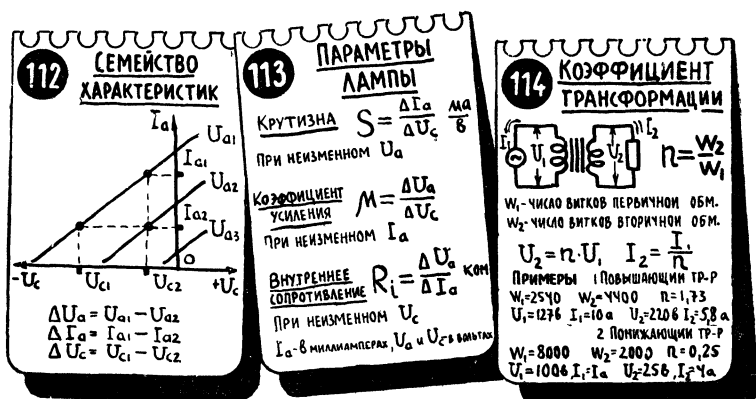 112
СЕМЕЙСТВО
ХАРАКТЕРИСТИК
Iа
Uа1
Iа1
Uа2
Iа2
Uа3
0
-Uс Uс1 Uс2 +Uс
ΔUа = Uа1 - Uа2
ΔIа = Iа1 - Iа2
ΔUс = Uс1 - Uс2
113
ПАРАМЕТРЫ
ЛАМПЫ
КРУТИЗНА S = ΔIа/ΔUс ма/в
ПРИ НЕИЗМЕННОМ Uа
КОЭФФИЦИЕНТ
УСИЛЕНИЯ M = ΔUа/ΔUс
ПРИ НЕИЗМЕННОМ Iа
ВНУТРЕННЕЕ
СОПРОТИВЛЕНИЕ Ri = ΔUа/ΔIа КОМ
ПРИ НЕИЗМЕННОМ Uс
Iа-В МИЛЛИАМПЕРАХ, Uа И Uс-В ВОЛЬТАХ
114
КОЭФФИЦИЕНТ
ТРАНСФОРМАЦИИ
I1 U1 U2 I2 n = W2/W1
W1-ЧИСЛО ВИТКОВ ПЕРВИЧНОЙ ОБМ.
W2-ЧИСЛО ВИТКОВ ВТОРИЧНОЙ ОБМ.
U2 = n·U1 I2 = I1/n
ПРИМЕРЫ 1 ПОВЫШАЮЩИЙ ТР-Р
W1=2540 W2=4400 n=1,73
U1=127в I1=10а U2=220в I2=5,8а
2 ПОНИЖАЮЩИЙ ТР-Р
W1=8000 W2=2000 n=0,25
U1=100в, I1=1а U2=25в, I2=4а